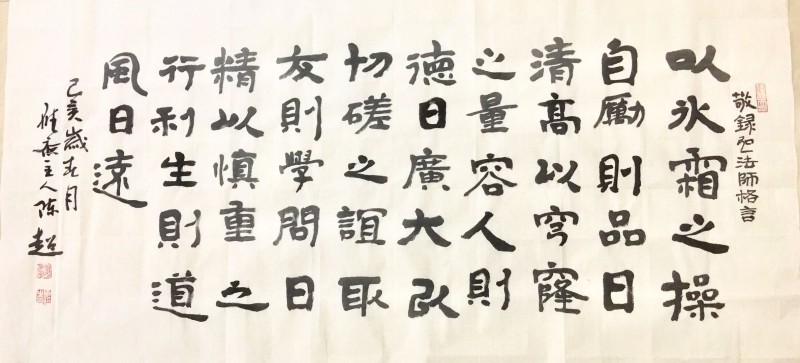 敬録弘一法師格言
以氷霜之操
自勵則品日
清高以穹窿
之量容人則
德日廣大以
切磋之誼取
友則學問日
精以慎重之
行利生則道
風日遠
己亥歲春月
主人陈超